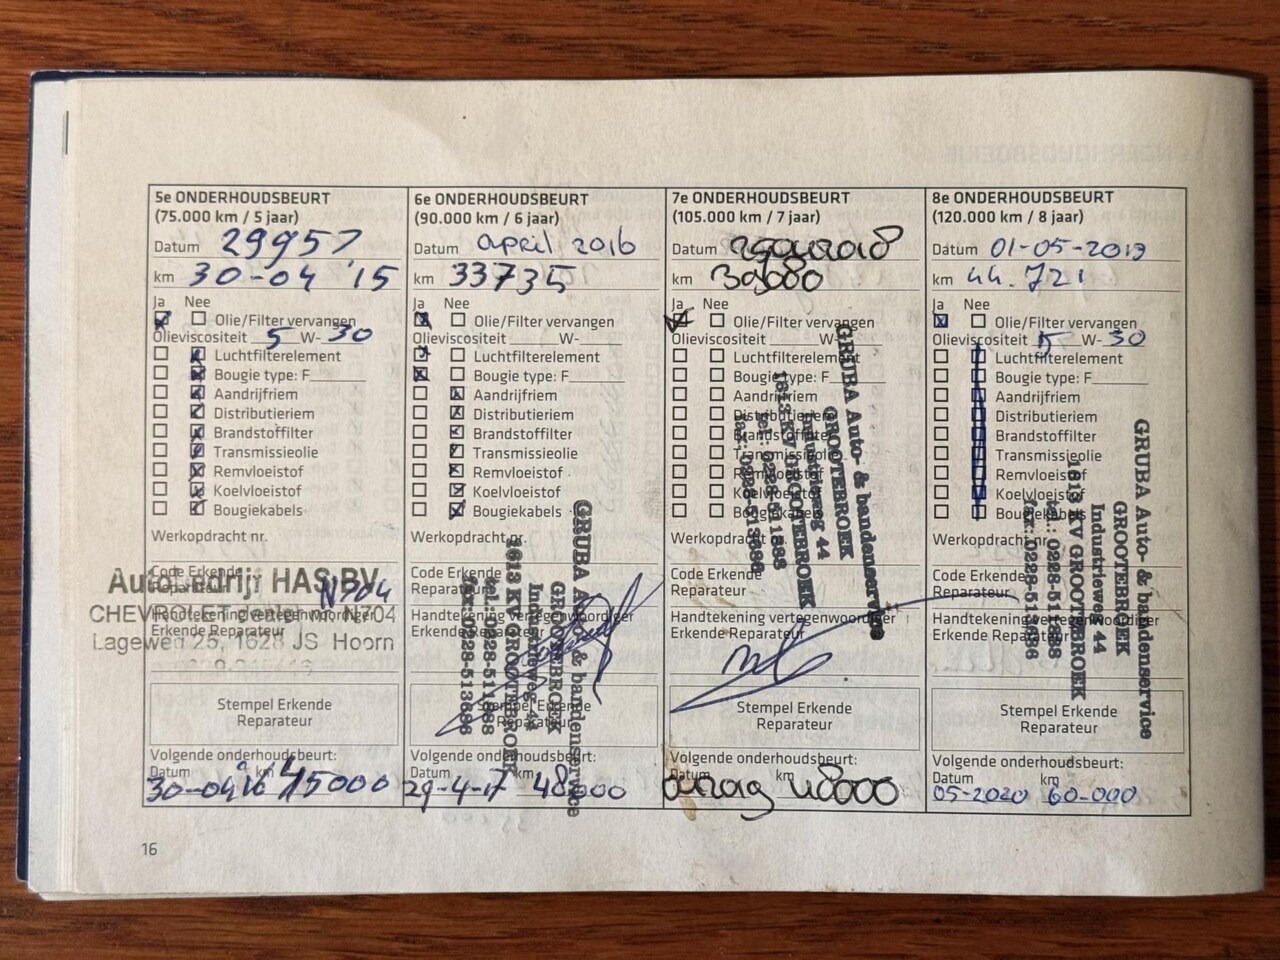 5e ONDERHOUDSBEURT
(75.000 km / 5 jaar)
Datum 29957
km 30-04 '15
Ja Nee
Olie/Filter vervangen
Olieviscositeit 5 W- 30
Luchtfilterelement
Bougie type: F
Aandrijfriem
Distributieriem
Brandstoffilter
Transmissieolie
Remvloeistof
Koelvloeistof
Bougiekabels
Werkopdracht nr.
Code Erkende
Reparateur N704
Autobedrijf HAS BV
CHEVROLET dealer nr. N704
Lageweg 25, 1628 JS Hoorn
Handtekening vertegenwoordiger
Erkende Reparateur
Stempel Erkende
Reparateur
Volgende onderhoudsbeurt:
Datum km
30-04 16 45000
6e ONDERHOUDSBEURT
(90.000 km / 6 jaar)
Datum april 2016
km 33735
Ja Nee
Olie/Filter vervangen
Olieviscositeit W-
Luchtfilterelement
Bougie type: F
Aandrijfriem
Distributieriem
Brandstoffilter
Transmissieolie
Remvloeistof
Koelvloeistof
Bougiekabels
Werkopdracht nr.
Code Erkende
Reparateur
Handtekening vertegenwoordiger
Erkende Reparateur
GRUBA Auto- & bandenservice
GROOTEBROEK
Industrieweg 44
1613 KV GROOTEBROEK
tel.: 0228-511888
fax.: 0228-513686
Stempel Erkende
Reparateur
Volgende onderhoudsbeurt:
Datum km
29-4-17 48000
7e ONDERHOUDSBEURT
(105.000 km / 7 jaar)
Datum
km
Ja Nee
Olie/Filter vervangen
Olieviscositeit W-
Luchtfilterelement
Bougie type: F
Aandrijfriem
Distributieriem
Brandstoffilter
Transmissieolie
Remvloeistof
Koelvloeistof
Bougiekabels
Werkopdracht nr.
GRUBA Auto- & bandenservice
GROOTEBROEK
Industrieweg 44
1613 KV GROOTEBROEK
tel.: 0228-511888
fax.: 0228-513686
Code Erkende
Reparateur
Handtekening vertegenwoordiger
Erkende Reparateur
Stempel Erkende
Reparateur
Volgende onderhoudsbeurt:
Datum km
48000
8e ONDERHOUDSBEURT
(120.000 km / 8 jaar)
Datum 01-05-2019
km 44.721
Ja Nee
Olie/Filter vervangen
Olieviscositeit 5 W- 30
Luchtfilterelement
Bougie type: F
Aandrijfriem
Distributieriem
Brandstoffilter
Transmissieolie
Remvloeistof
Koelvloeistof
Bougiekabels
Werkopdracht nr.
Code Erkende
Reparateur
Handtekening vertegenwoordiger
Erkende Reparateur
GRUBA Auto- & bandenservice
GROOTEBROEK
Industrieweg 44
1613 KV GROOTEBROEK
tel.: 0228-511888
fax.: 0228-513686
Stempel Erkende
Reparateur
Volgende onderhoudsbeurt:
Datum km
05-2020 60-000
16